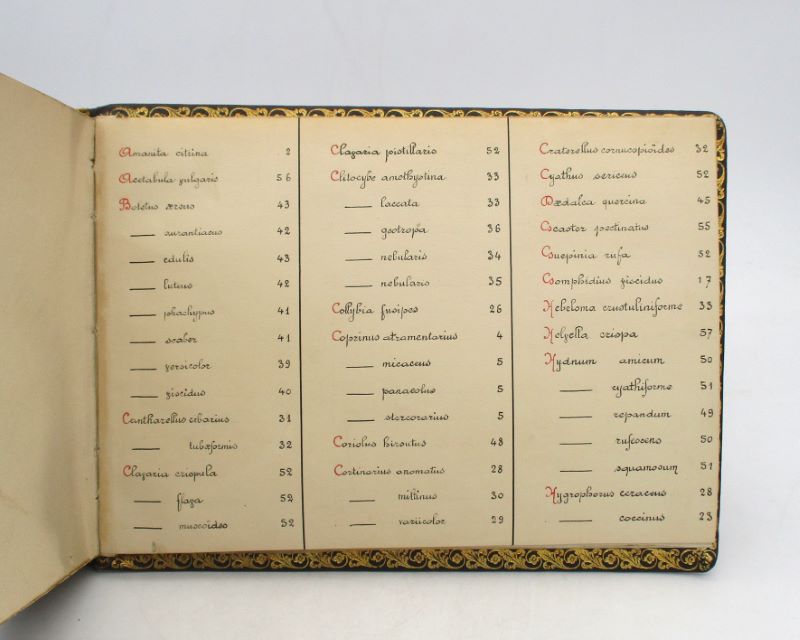 Amanita citrina 2
Acetabula vulgaris 56
Boletus æreus 43
—— aurantiacus 42
—— edulis 43
—— luteus 42
—— pachypus 41
—— scaber 41
—— versicolor 39
—— viscidus 40
Cantharellus cibarius 31
—— tubæformis 32
Clavaria crispula 52
—— flava 52
—— muscoïdes 52
Clavaria pistillaris 52
Clitocybe amethystina 33
—— laccata 33
—— geotropa 36
—— nebularis 34
—— nebularis 35
Collybia fusipes 26
Coprinus atramentarius 4
—— micaceus 5
—— panaeolus 5
—— stercorarius 5
Coriolus hirsutus 48
Cortinarius anomalus 28
—— miltinus 30
—— variicolor 29
Craterellus cornucopioïdes 32
Cyathus sericeus 52
Dædalea quercina 45
Geaster pectinatus 55
Guepinia rufa 52
Gomphidius viscidus 17
Hebeloma crustuliniforme 33
Helvella crispa 57
Hydnum amicum 50
—— cyathiforme 51
—— repandum 49
—— rufescens 50
—— squamosum 51
Hygrophorus ceraceus 28
—— coccinus 23